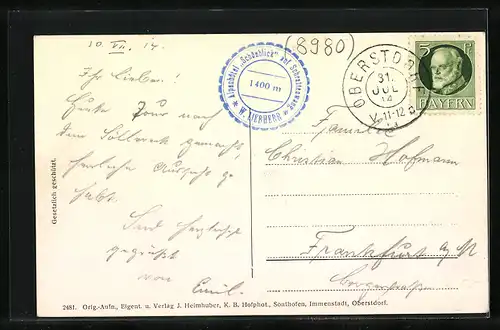 (8980)
10. VII. 14.
Ihr Lieben!
Heute Tour nach
dem Söllereck gemacht,
herrliche Aussicht ge
habt.
Seid herzlichst
gegrüßt
von
Emil.
Gesetzlich geschützt.
Alpenhotel „Schönblick" auf Schrattenwang
1400 m
* W. LIERHERR *
OBERSTDORF
31.
JUL
14
V.11-12
5 Pf
BAYERN
Familie
Christian Hofmann
Frankfurt a/M
2481. Orig.-Aufn., Eigent. u. Verlag J. Heimhuber, K. B. Hofphot., Sonthofen, Immenstadt, Oberstdorf.